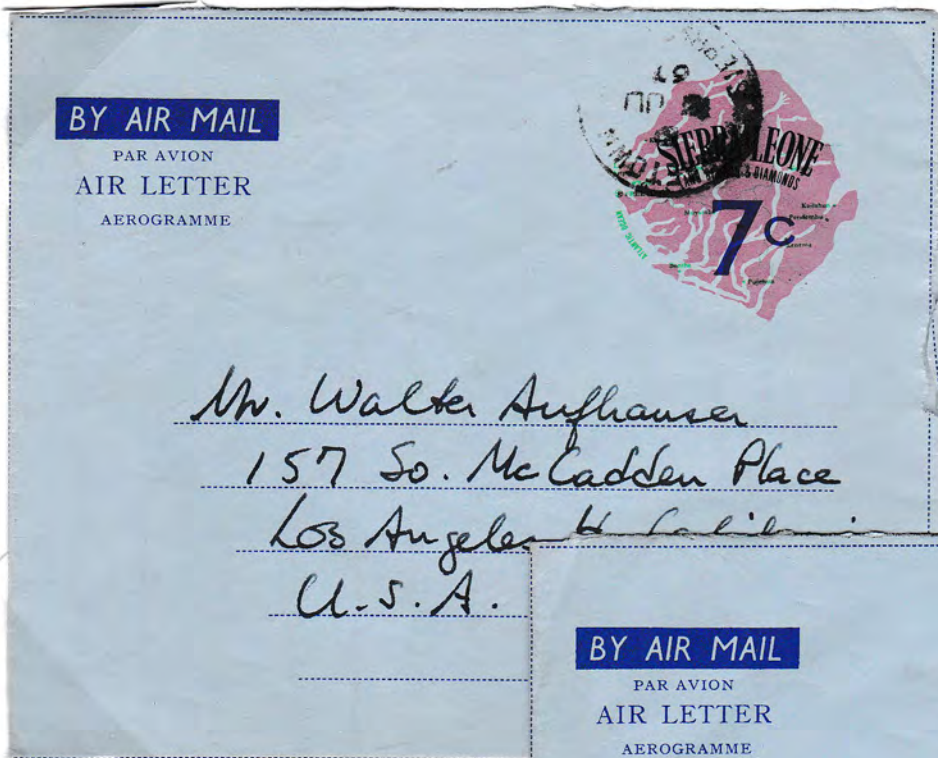 BY AIR MAIL
PAR AVION
AIR LETTER
AEROGRAMME
SIERRA LEONE
& DIAMONDS
7c
ATLANTIC OCEAN
Mr. Walter Aufhauser
157 So. McCadden Place
Los Angeles
U.S.A.
BY AIR MAIL
PAR AVION
AIR LETTER
AEROGRAMME